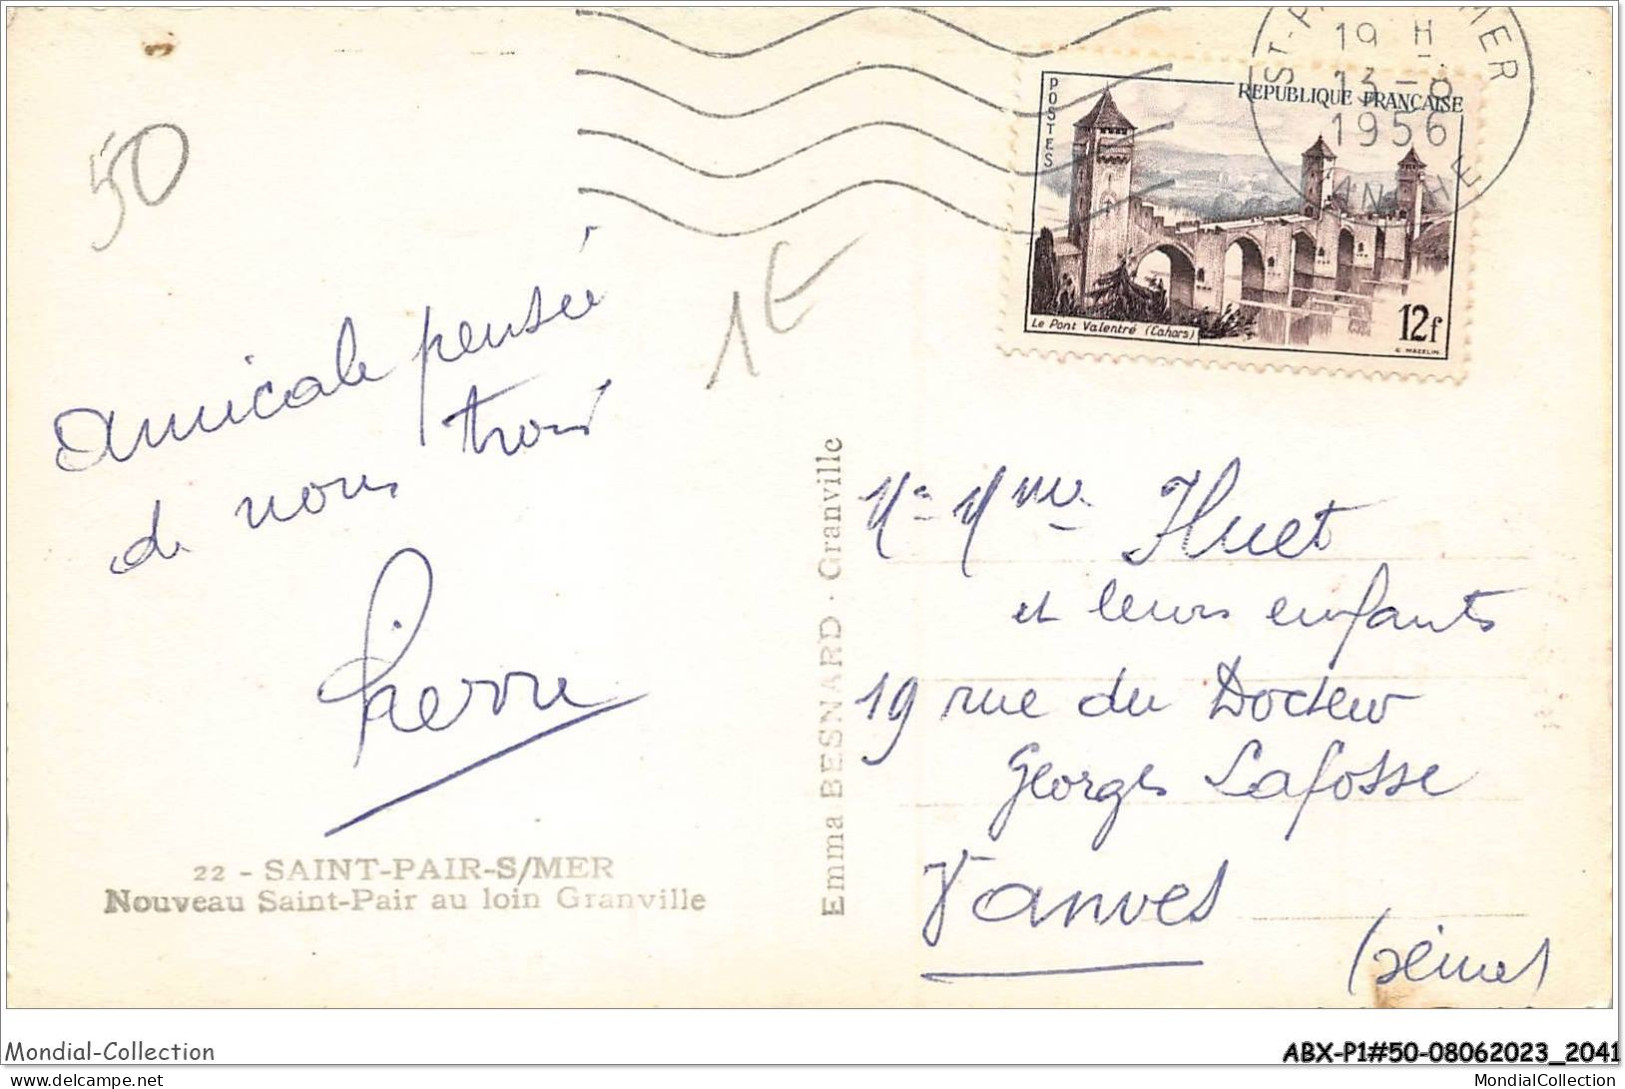 50
1E
Amicale pensée
de nous trois
Pierre
22 - SAINT-PAIR-S/MER
Nouveau Saint-Pair au loin Granville
Emma BESNARD - Granville
19 H
13 -8
1956
MANCHE
POSTES
REPUBLIQUE FRANÇAISE
Le Pont Valentré (Cahors)
12f
G. MAZELIN
Mr Mme Huet
et leurs enfants
19 rue du Docteur
Georges Lafosse
Vanves
(Seine)
Mondial-Collection
ABX-P1#50-08062023_2041
mondial-collection
MondialCollection